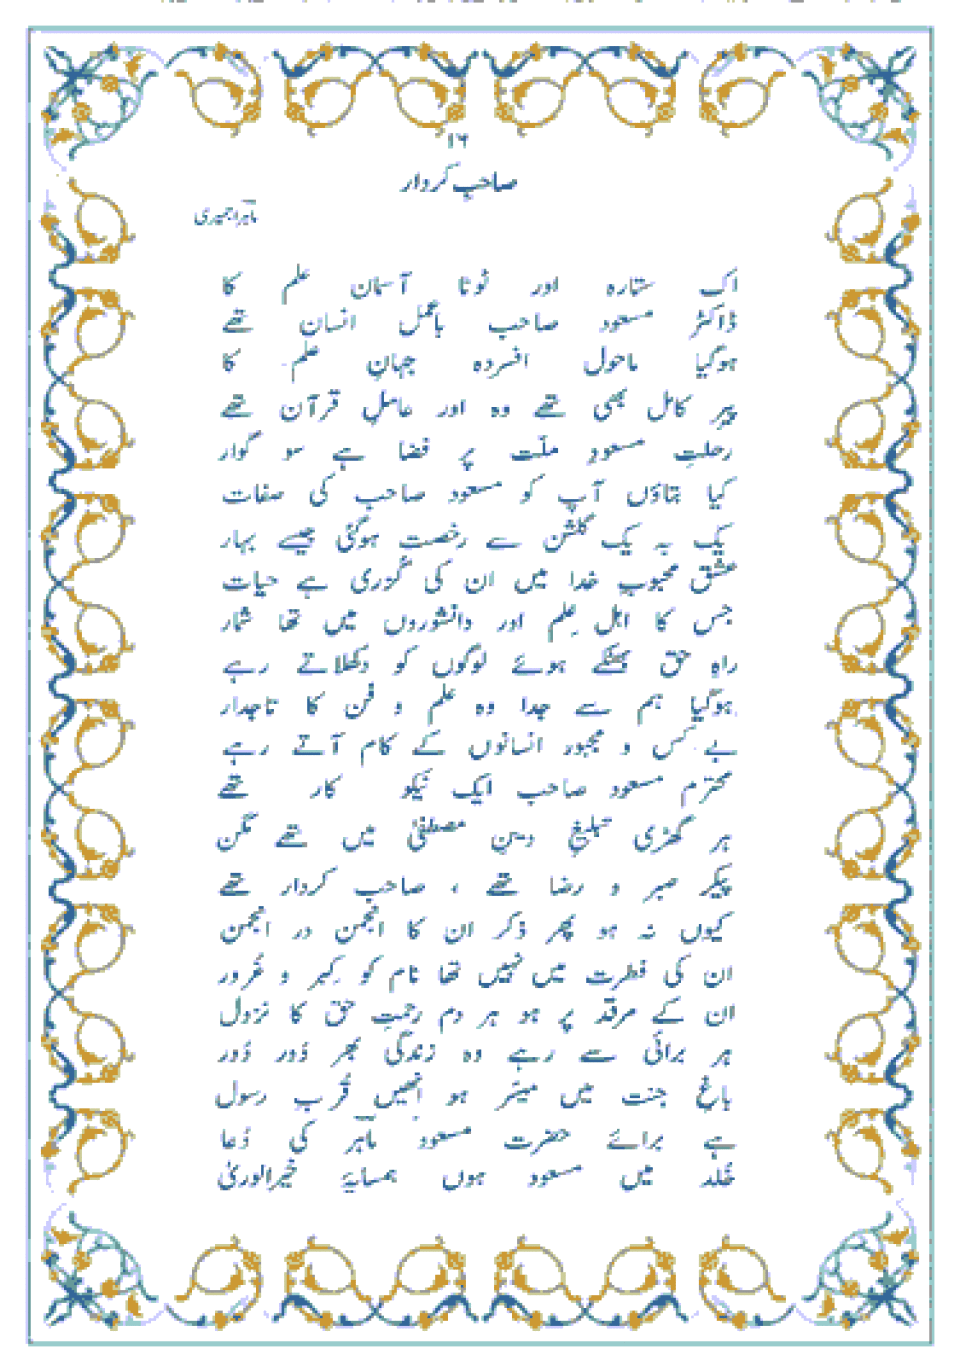 ۱۶
صاحبِ کردار
ماہر اجمیری
اک ستارہ اور ٹوٹا آسمان علم کا
ڈاکٹر مسعود صاحب باعمل انسان تھے
ہوگیا ماحول افسردہ جہانِ علم کا
پیر کامل بھی تھے وہ اور عاملِ قرآن تھے
رحلتِ مسعودِ ملّت پر فضا ہے سو گوار
کیا بتاؤں آپ کو مسعود صاحب کی صفات
یک بہ یک گلشن سے رخصت ہوگئی جیسے بہار
عشق محبوبِ خدا میں ان کی گزری ہے حیات
جس کا اہل عِلم اور دانشوروں میں تھا شمار
راہِ حق بھٹکے ہوئے لوگوں کو دکھلاتے رہے
ہوگیا ہم سے جدا وہ علم و فن کا تاجدار
بے کس و مجبور انسانوں کے کام آتے رہے
محترم مسعود صاحب ایک نیکو کار تھے
ہر گھڑی تبلیغِ دینِ مصطفیٰ میں تھے مگن
پیکرِ صبر و رضا تھے ، صاحبِ کردار تھے
کیوں نہ ہو پھر ذکر ان کا انجمن در انجمن
ان کی فطرت میں نہیں تھا نام کو کِبر و غُرور
ان کے مرقد پر ہو ہر دم رحمتِ حق کا نزول
ہر برائی سے رہے وہ زندگی بھر دُور دُور
باغِ جنت میں میسّر ہو انھیں قُربِ رسول
ہے برائے حضرت مسعود ماہر کی دُعا
خُلد میں مسعود ہوں ہمسایۂ خیرالوریٰ